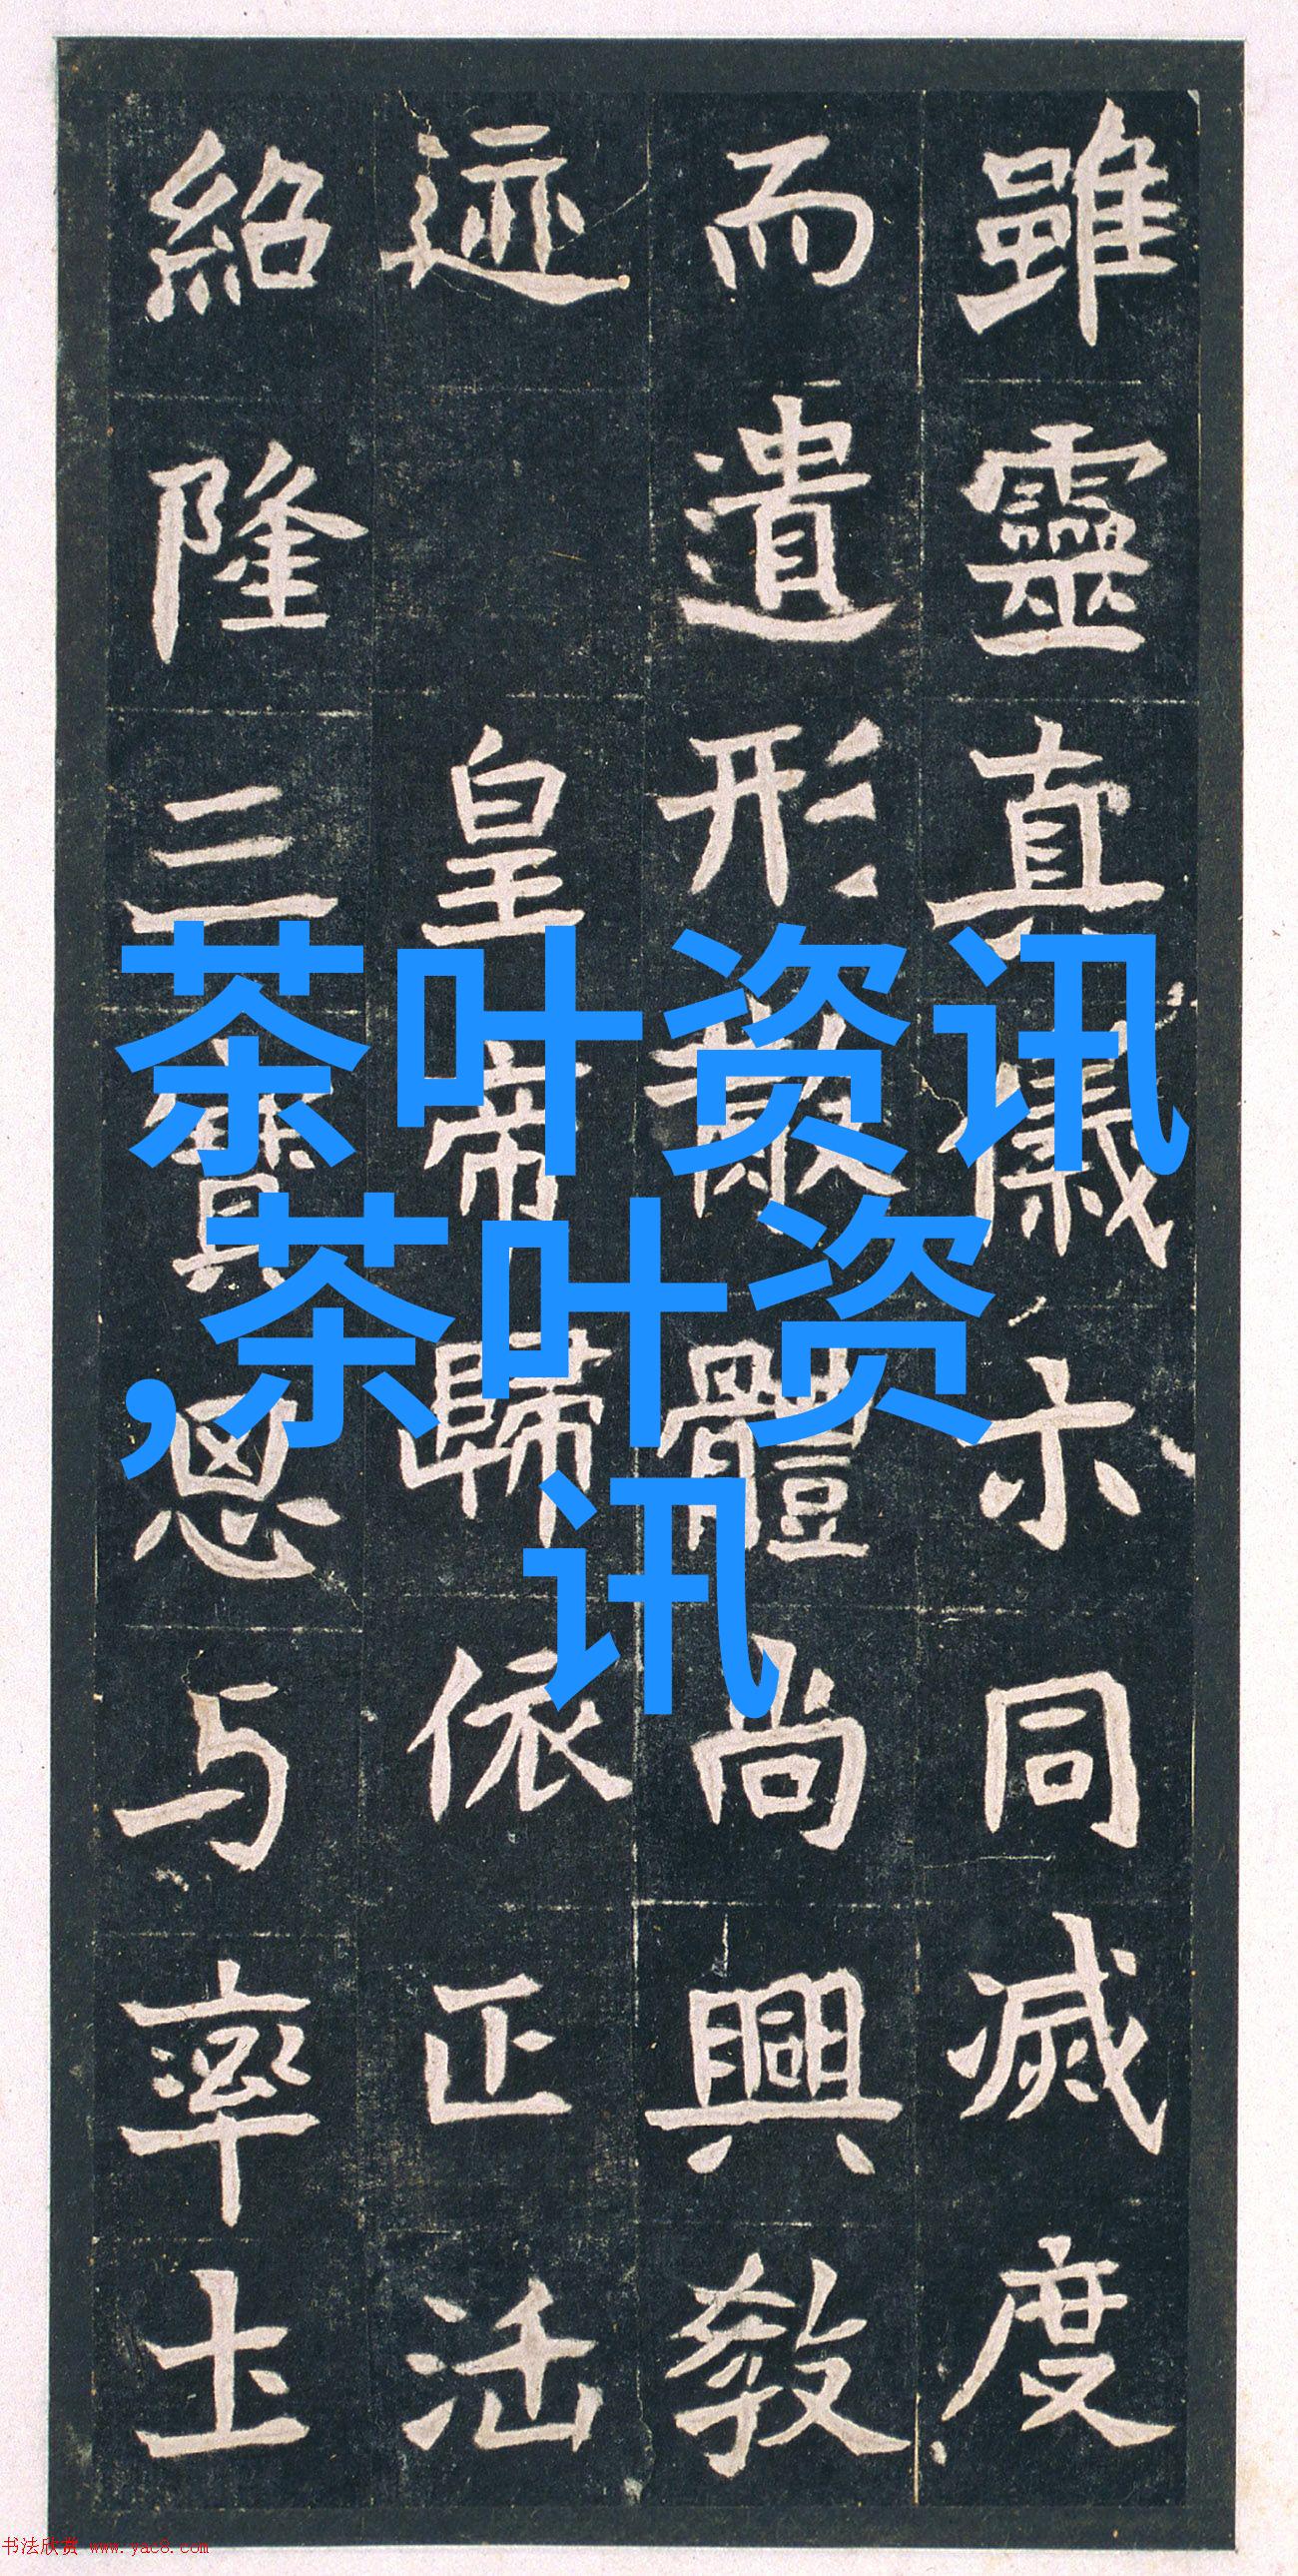 雖靈真儀示同滅度
而遺形散體尚興教
迹 皇帝歸依正法
紹隆三寶恩与率土
茶叶资讯
,茶叶资
讯
书法欣赏 www.yac8.com